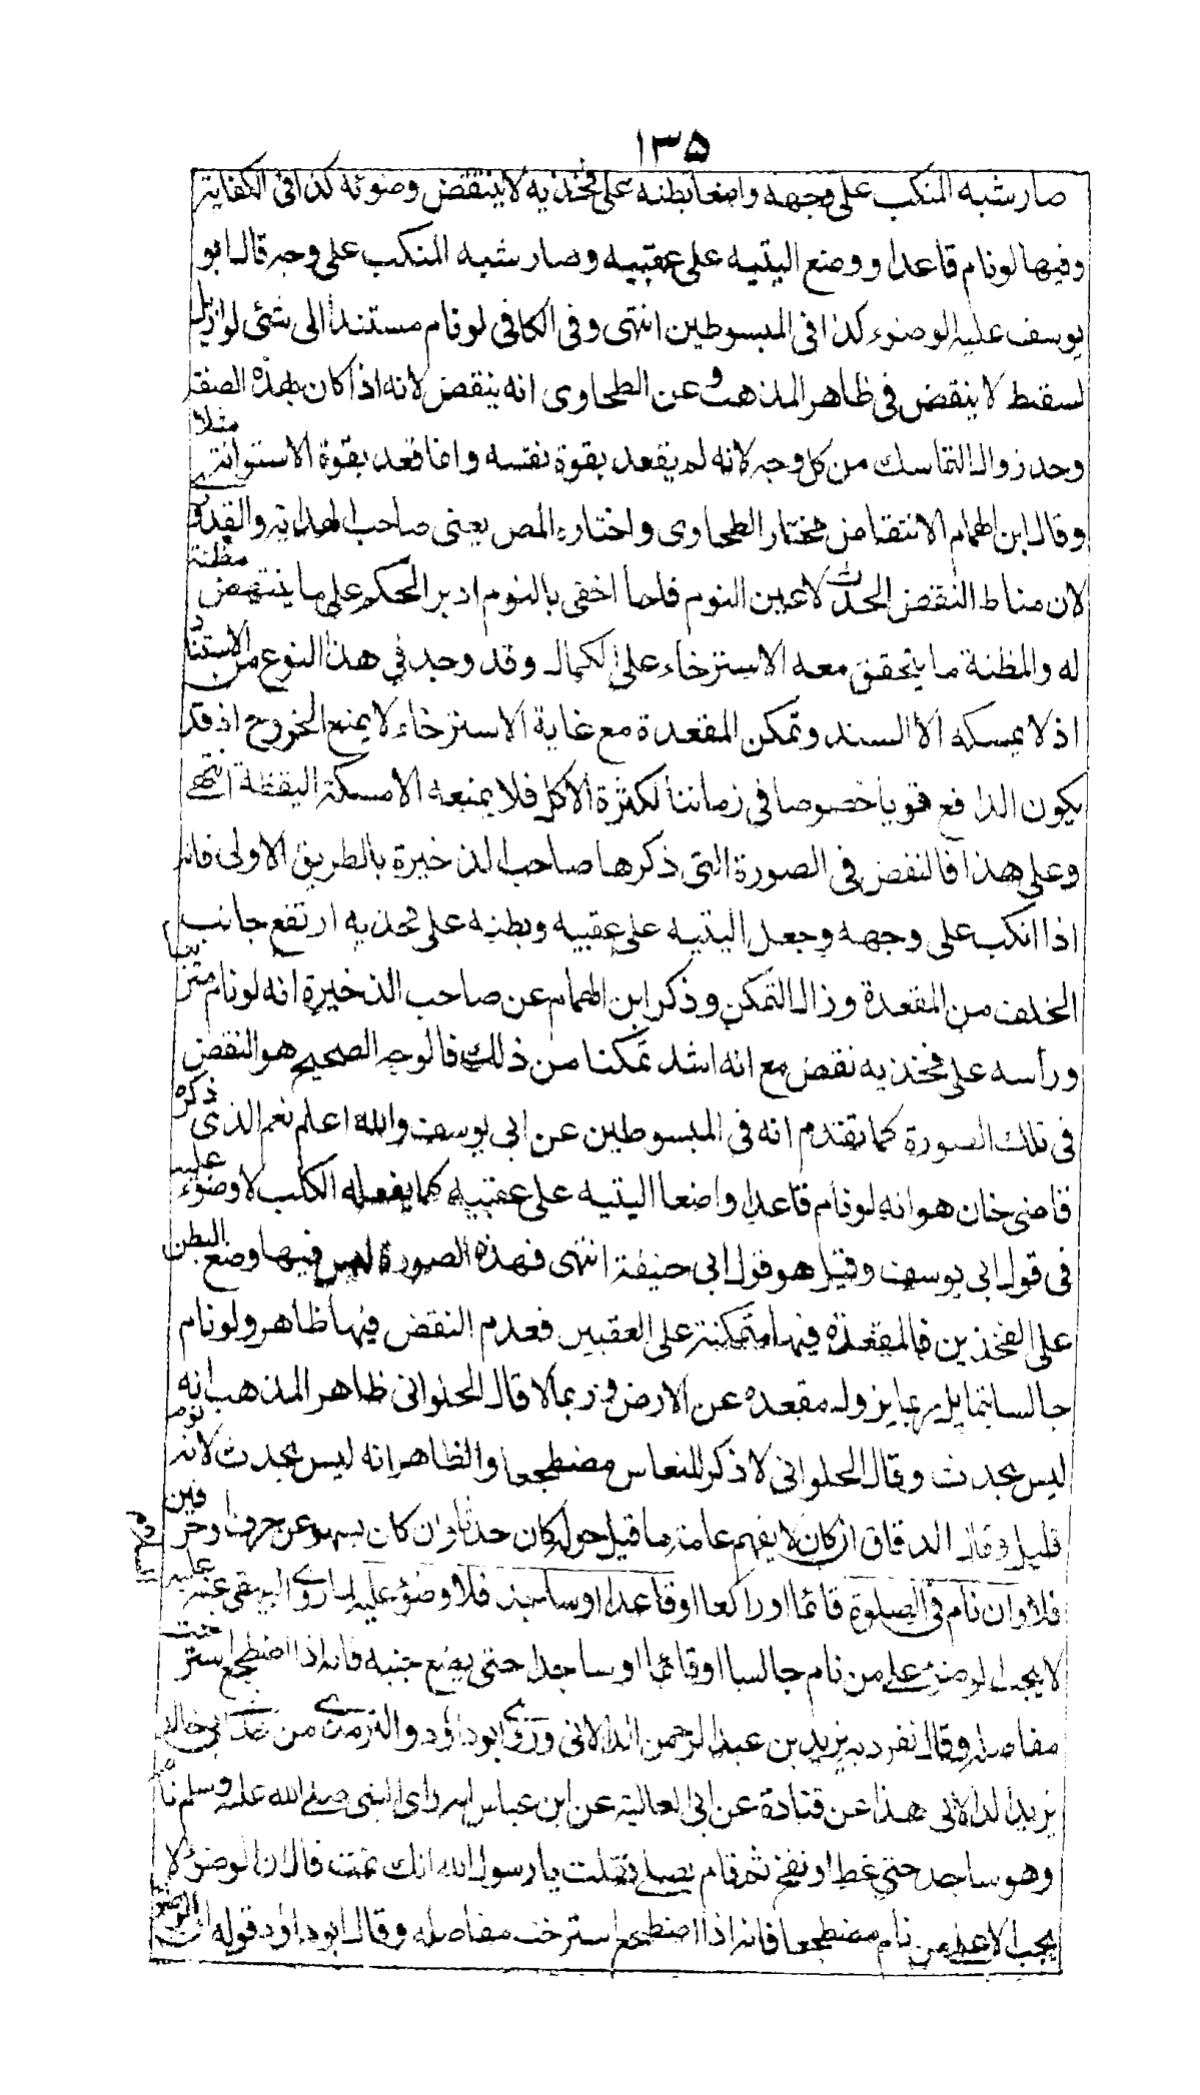 ١٣٥
صار شبه المنكب على وجهه واضعا بطنه على فخذيه لا ينتقض وضوئه كذا فى الكفاية
وفيها لو نام قاعدا ووضع اليتيه على عقبيه وصار شبه المنكب على وجه قال ابو
يوسف عليه الوضوء كذا فى المبسوطين انتهى وفى الكافى لو نام مستندا الى شئى لو ازيل
لسقط لا ينقض فى ظاهر المذهب وعن الطحاوى انه ينقض لانه اذا كان بهذه الصفة
وجد زوال التماسك من كل وجه لانه لم يقعد بقوة نفسه وانما قعد بقوة الاستوا انتهى مثلا
وقال ابن الهمام الانتقاض مختار الطحاوى واختاره المص يعنى صاحب الهداية والقدورى
لان مناط النقض الحدث لا عين النوم فلما اخفى بالنوم ادير الحكم على ما ينتهض مظنة
له والمظنة ما يتحقق معه الاسترخاء على الكمال وقد وجد فى هذا النوع من الاستناد
اذ لا يمسكه الا السند وتمكن المقعدة مع غاية الاسترخاء لا يمنع الخروج اذ قد
يكون الدافع قويا خصوصا فى زماننا لكثرة الاكل فلا يمنعه الا مسكة اليقظة انتهى
وعلى هذا فالنقض فى الصورة التى ذكرها صاحب الذخيرة بالطريق الاولى فانه
اذا انكب على وجهه وجعل اليتيه على عقبيه وبطنه على فخذيه ارتفع جانب
الخلف من المقعدة وزال التمكن وذكر ابن الهمام عن صاحب الذخيرة انه لو نام متربعا
ورأسه على فخذيه نقض مع انه اشد تمكنا من ذلك فالوجه الصحيح هو النقض
فى تلك الصورة كما تقدم انه فى المبسوطين عن ابى يوسف والله اعلم نعم الذى ذكره
قاضى خان هو انه لو نام قاعدا واضعا اليتيه على عقبيه كما يفعله الكلب لا وضوء عليه
فى قول ابى يوسف وقيل هو قول ابى حنيفة انتهى فهذه الصورة ليس فيها وضع البطن
على الفخذين فالمقعدة فيها متمكنة على العقبين فعدم النقض فيها ظاهر ولو نام
جالسا يتمايل ربما يزول مقعده عن الارض وربما لا قال الحلوانى ظاهر المذهب انه
ليس بحدث وقال الحلوانى لا ذكر للنعاس مضطجعا والظاهر انه ليس بحدث لانه نوم
قليل وقال الدقاق ان كان لا يفهم عامة ما قيل حوله كان حدثا وان كان يسهو عن حرف او حرفين
فلا وان نام فى الصلوة قائما او راكعا او قاعدا او ساجد فلا وضوء عليه لما روى البيهقى عنه عليه السلام
لا يجب الوضوء على من نام جالسا او قائما او ساجدا حتى يضع جنبه فانه اذا اضطجع استرخت
مفاصله وقال تفرد به يزيد بن عبد الرحمن الدالانى وروى ابو داؤد والترمذى من حديث ابى خالد
يزيد الدالانى هذا عن قتادة عن ابى العالية عن ابن عباس انه راى النبى صلى الله عليه وسلم نام
وهو ساجد حتى غط او نفخ ثم قام يصلى فقلت يا رسول الله انك نمت قال ان الوضوء لا
يجب الا على من نام مضطجعا فانه اذا اضطجع استرخت مفاصله وقال ابو داؤد قوله ان الوضوء